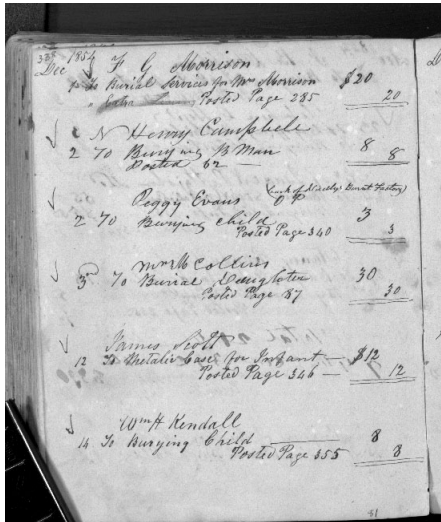 1854 F G Morrison
Dec
15 To Burial Services for Mrs Morrison $20
" Extra Posted Page 285 20
N Henry Campbell
2 To Burying B Man 8
Posted 62 — 8
Peggy Evans (back of Burnt Factory)
2 To Burying Child 3
Posted Page 340 3
Wm M Collins
3 To Burial Daughter 30
Posted Page 87 30
James Scott
12 To Metalic Case for Infant — $12
Posted Page 346 — 12
Wm H Kendall
14 To Burying Child 8
Posted Page 355 8